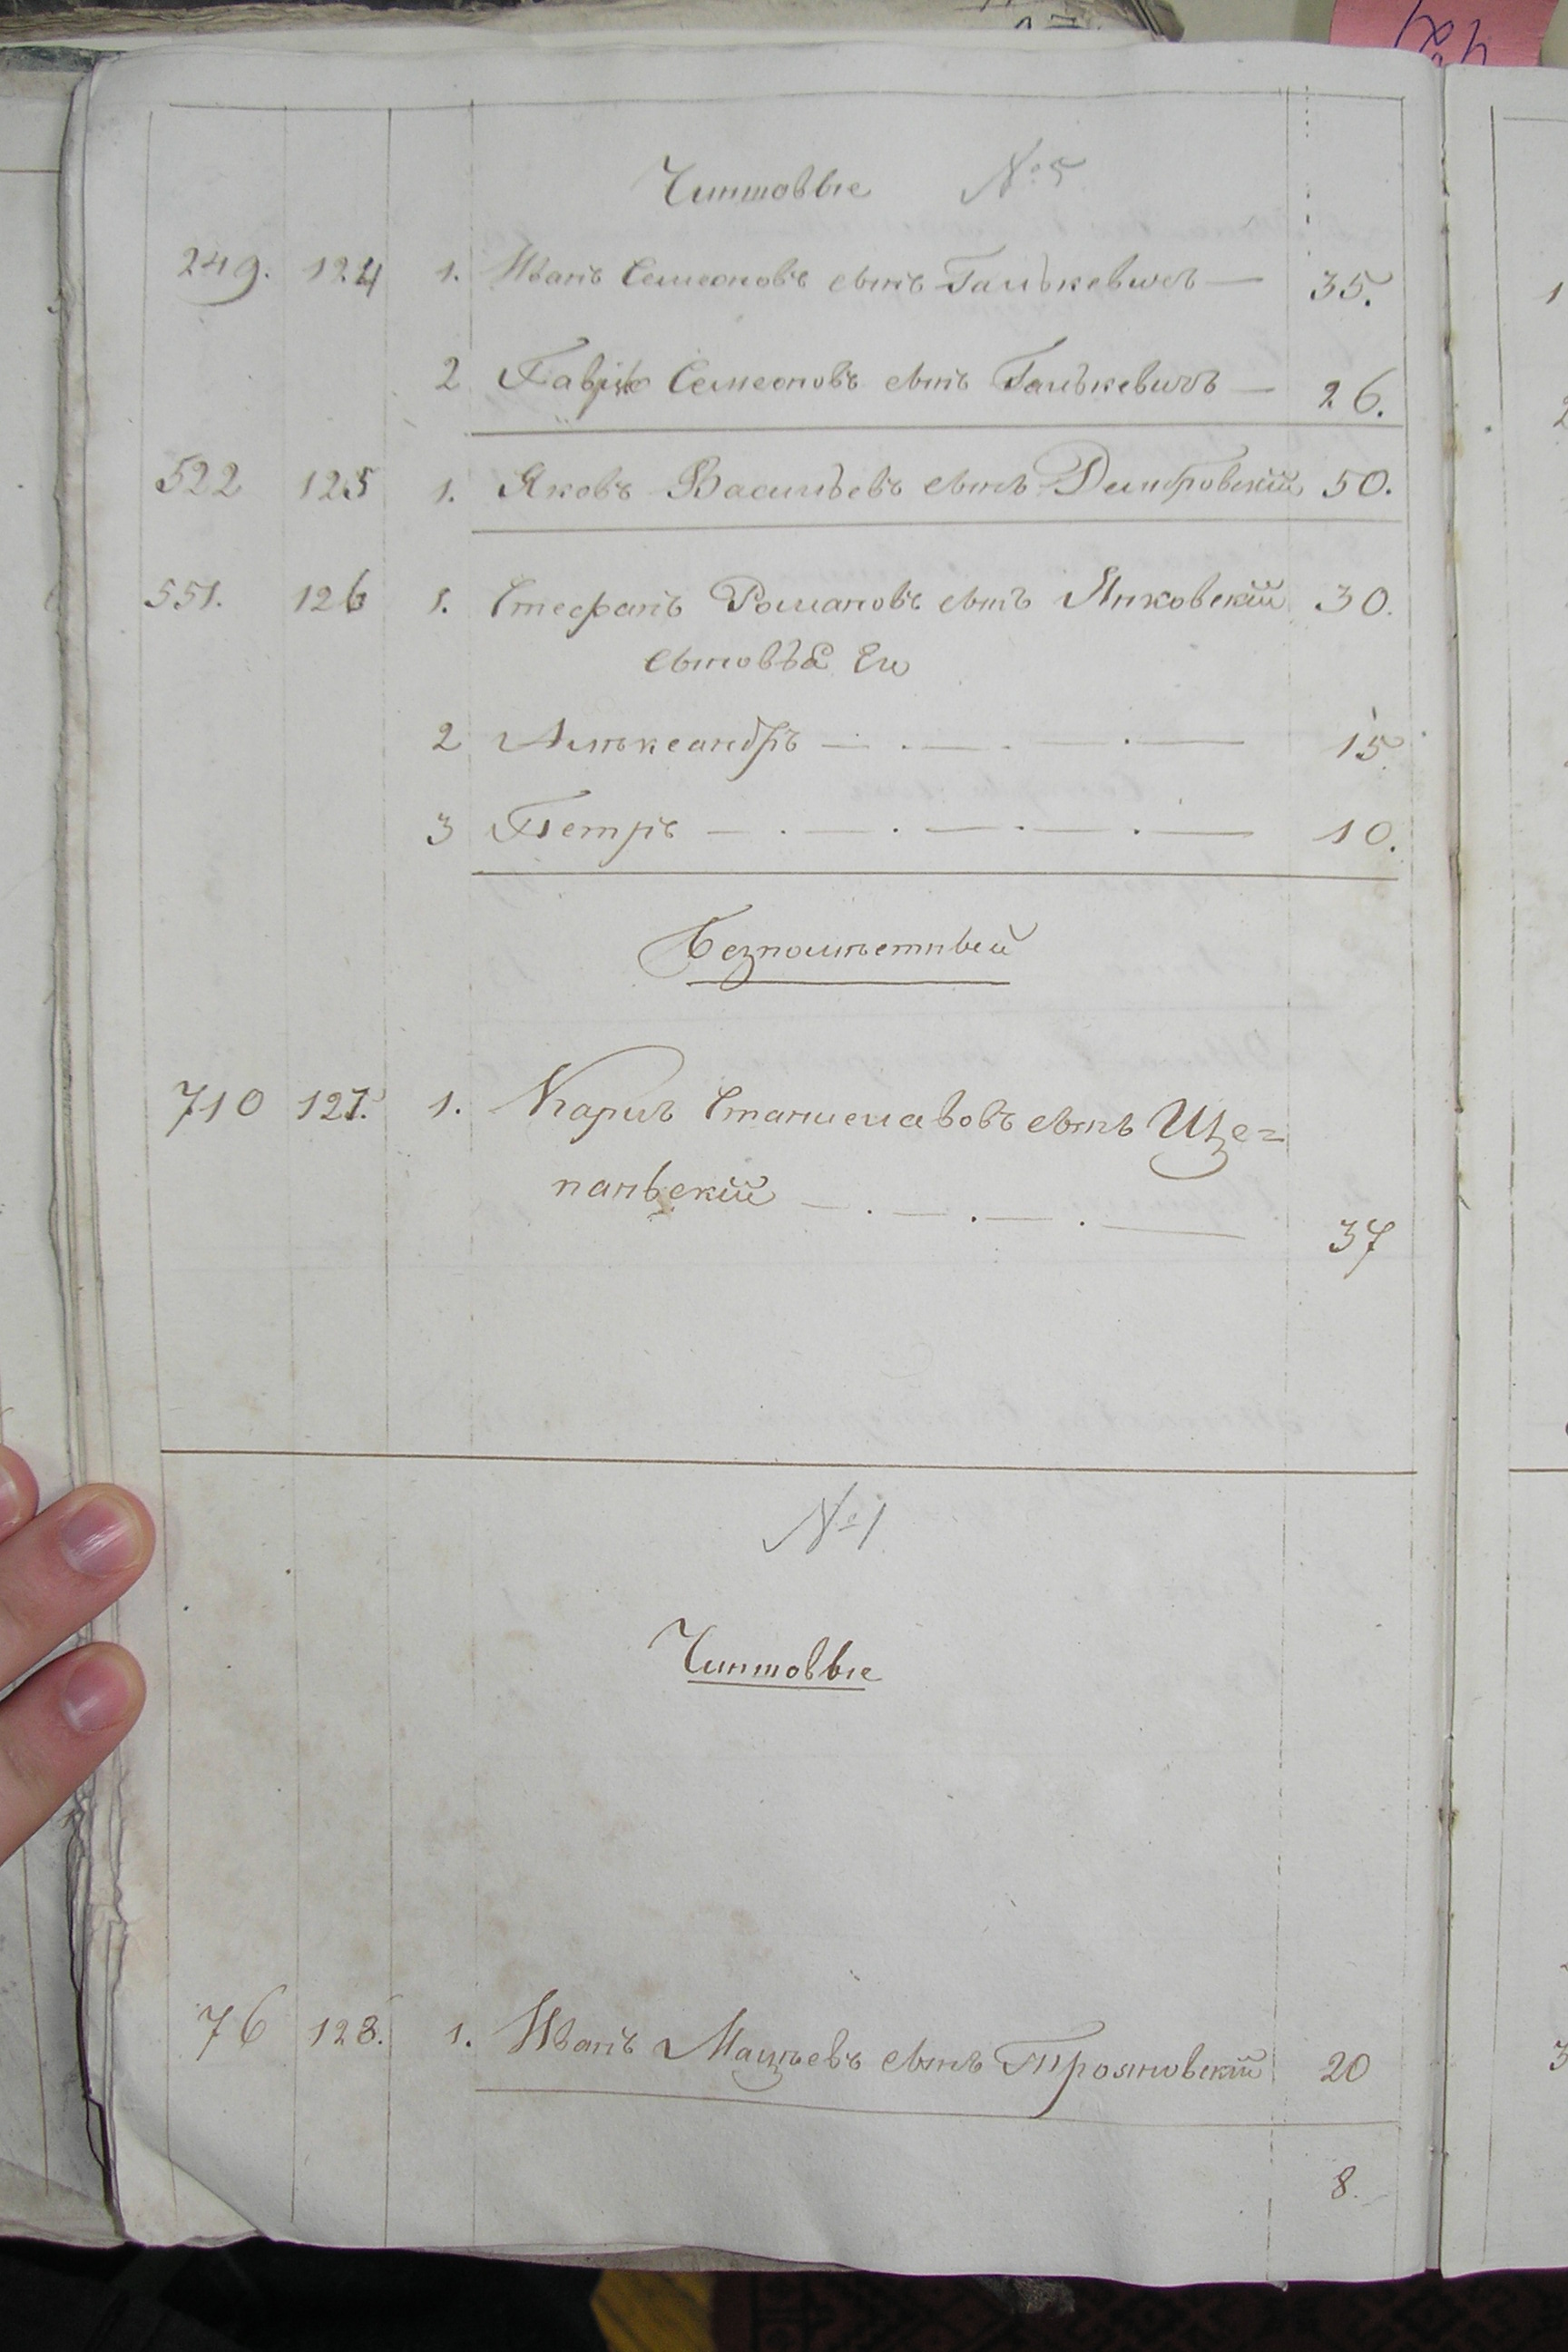 Чиншовые №5
249. 124 1. Иванъ Семеоновъ сынъ Галькевичъ — 35.
2 Семеоновъ сынъ Галькевичъ — 26.
522 125 1. Яковъ Васильевъ сынъ Дембровскій 50.
551. 126 1. Стефанъ Романовъ сынъ Янковскій 30.
Сыновья Его
2 Алѣксандръ — . — . — . — 15.
3 Петръ — . — . — . — . — 10.
Безпомѣстный
710 127. 1. Карлъ Станиславовъ сынъ Ще=
паньскій — . — . — . — 37
№1
Чиншовые
76 128. 1. Иванъ Мацѣевъ сынъ Трояновскій 20
8.